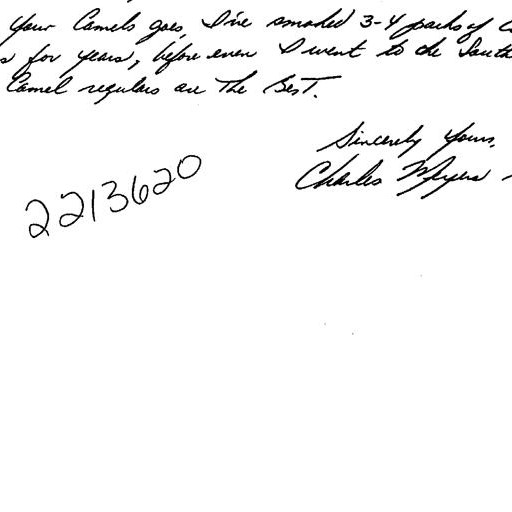 your Camels goes, I've smoked 3-4 packs of
for years, before even I went to the South
Camel regulars are The BesT.
Sincerely Yours,
Charles Meyers
2213620